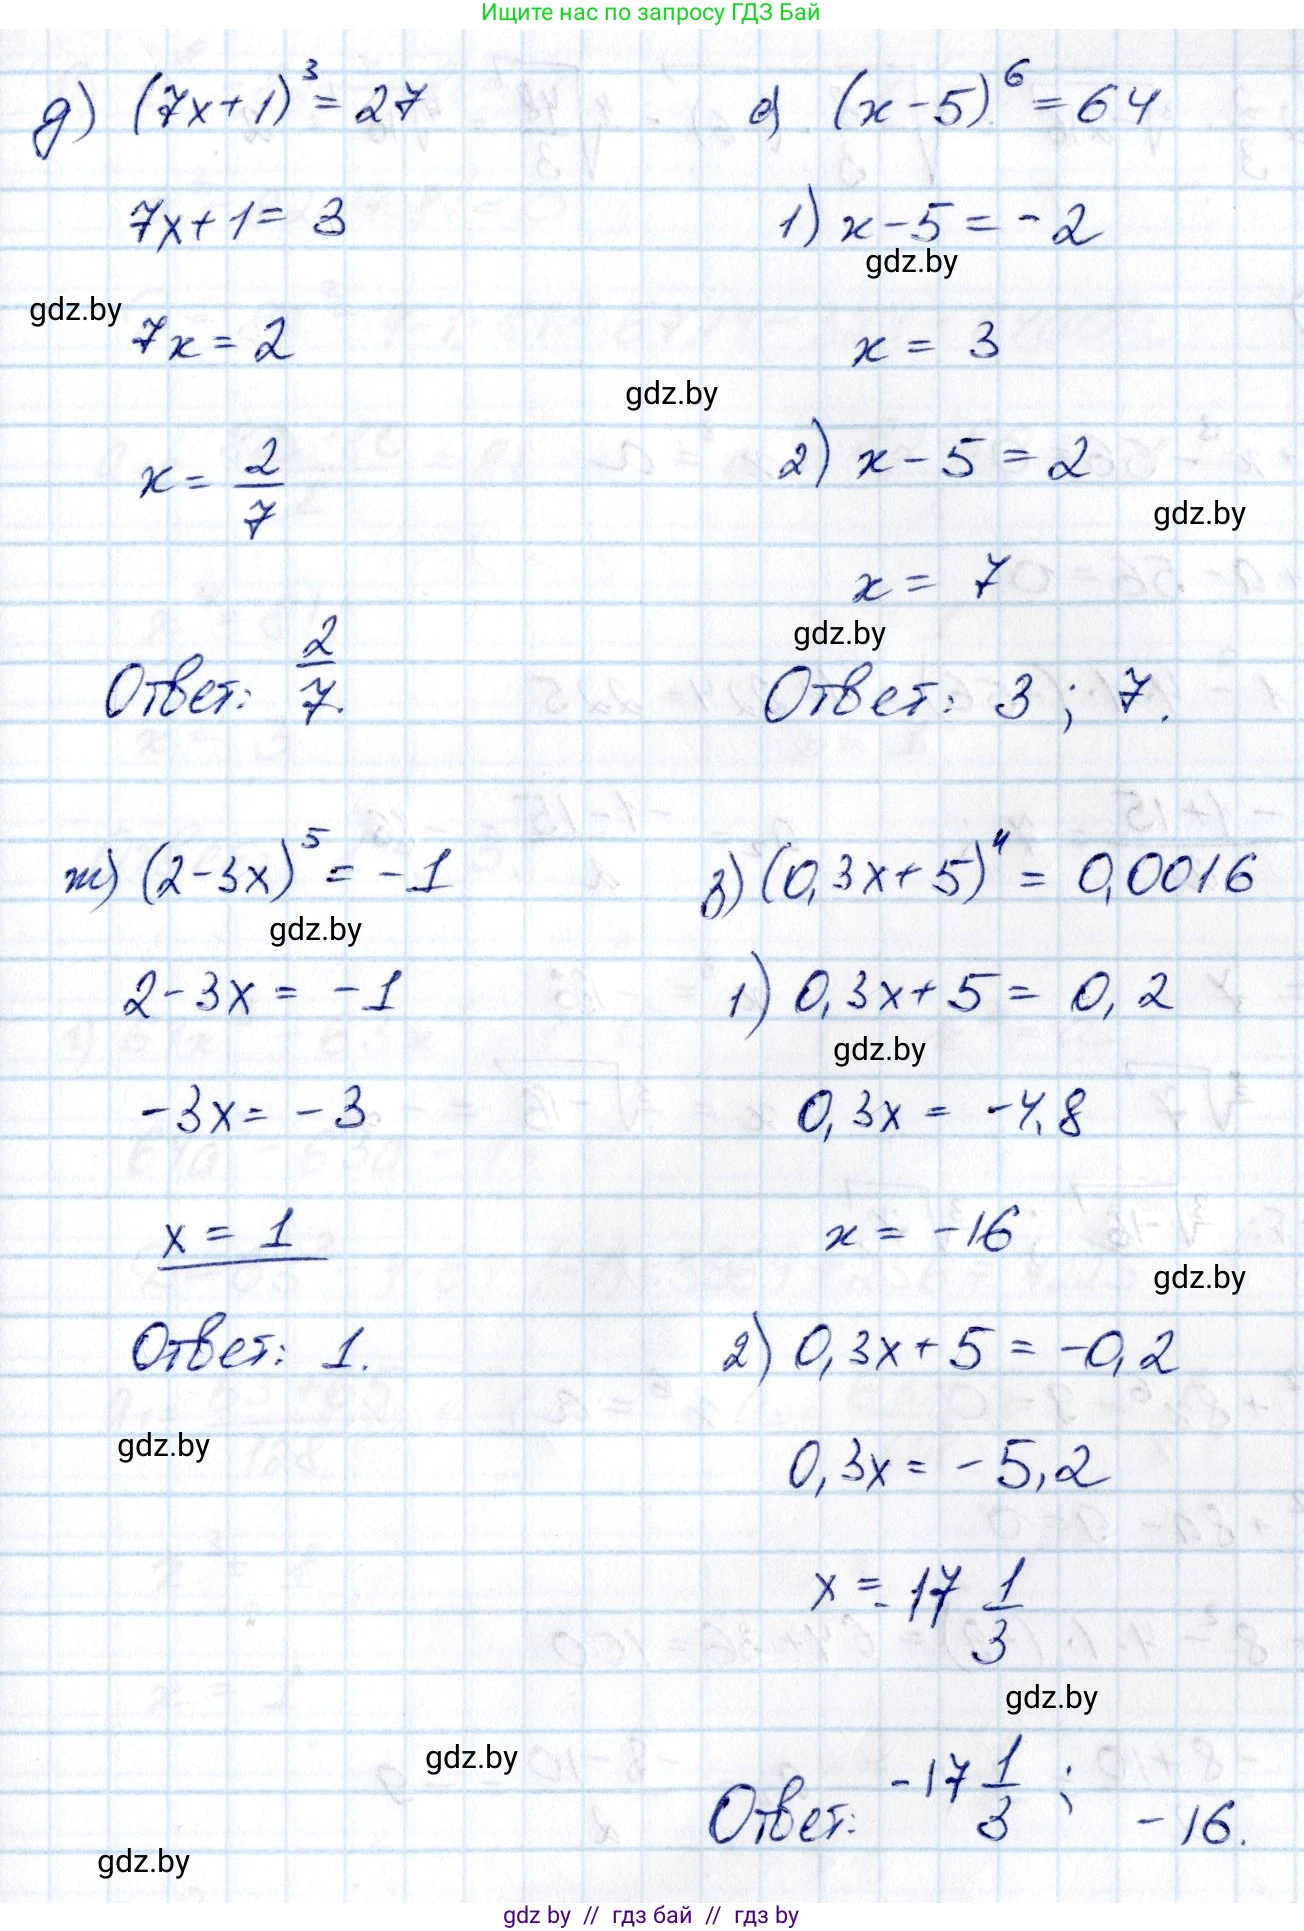 Ищите нас по запросу ГДЗ Бай
д) (7x+1)³ = 27
7x+1 = 3
gdz.by
7x = 2
x = 2/7
Ответ: 2/7.
е) (x-5)⁶ = 64
1) x-5 = -2
gdz.by
x = 3
gdz.by
2) x-5 = 2
gdz.by
x = 7
gdz.by
Ответ: 3; 7.
ж) (2-3x)⁵ = -1
gdz.by
2-3x = -1
-3x = -3
x = 1
Ответ: 1.
gdz.by
з) (0,3x+5)⁴ = 0,0016
1) 0,3x+5 = 0,2
gdz.by
0,3x = -4,8
x = -16
gdz.by
2) 0,3x+5 = -0,2
0,3x = -5,2
x = -17 1/3
gdz.by
gdz.by
Ответ: -17 1/3; -16.
gdz.by
gdz by // гдз бай // гдз by